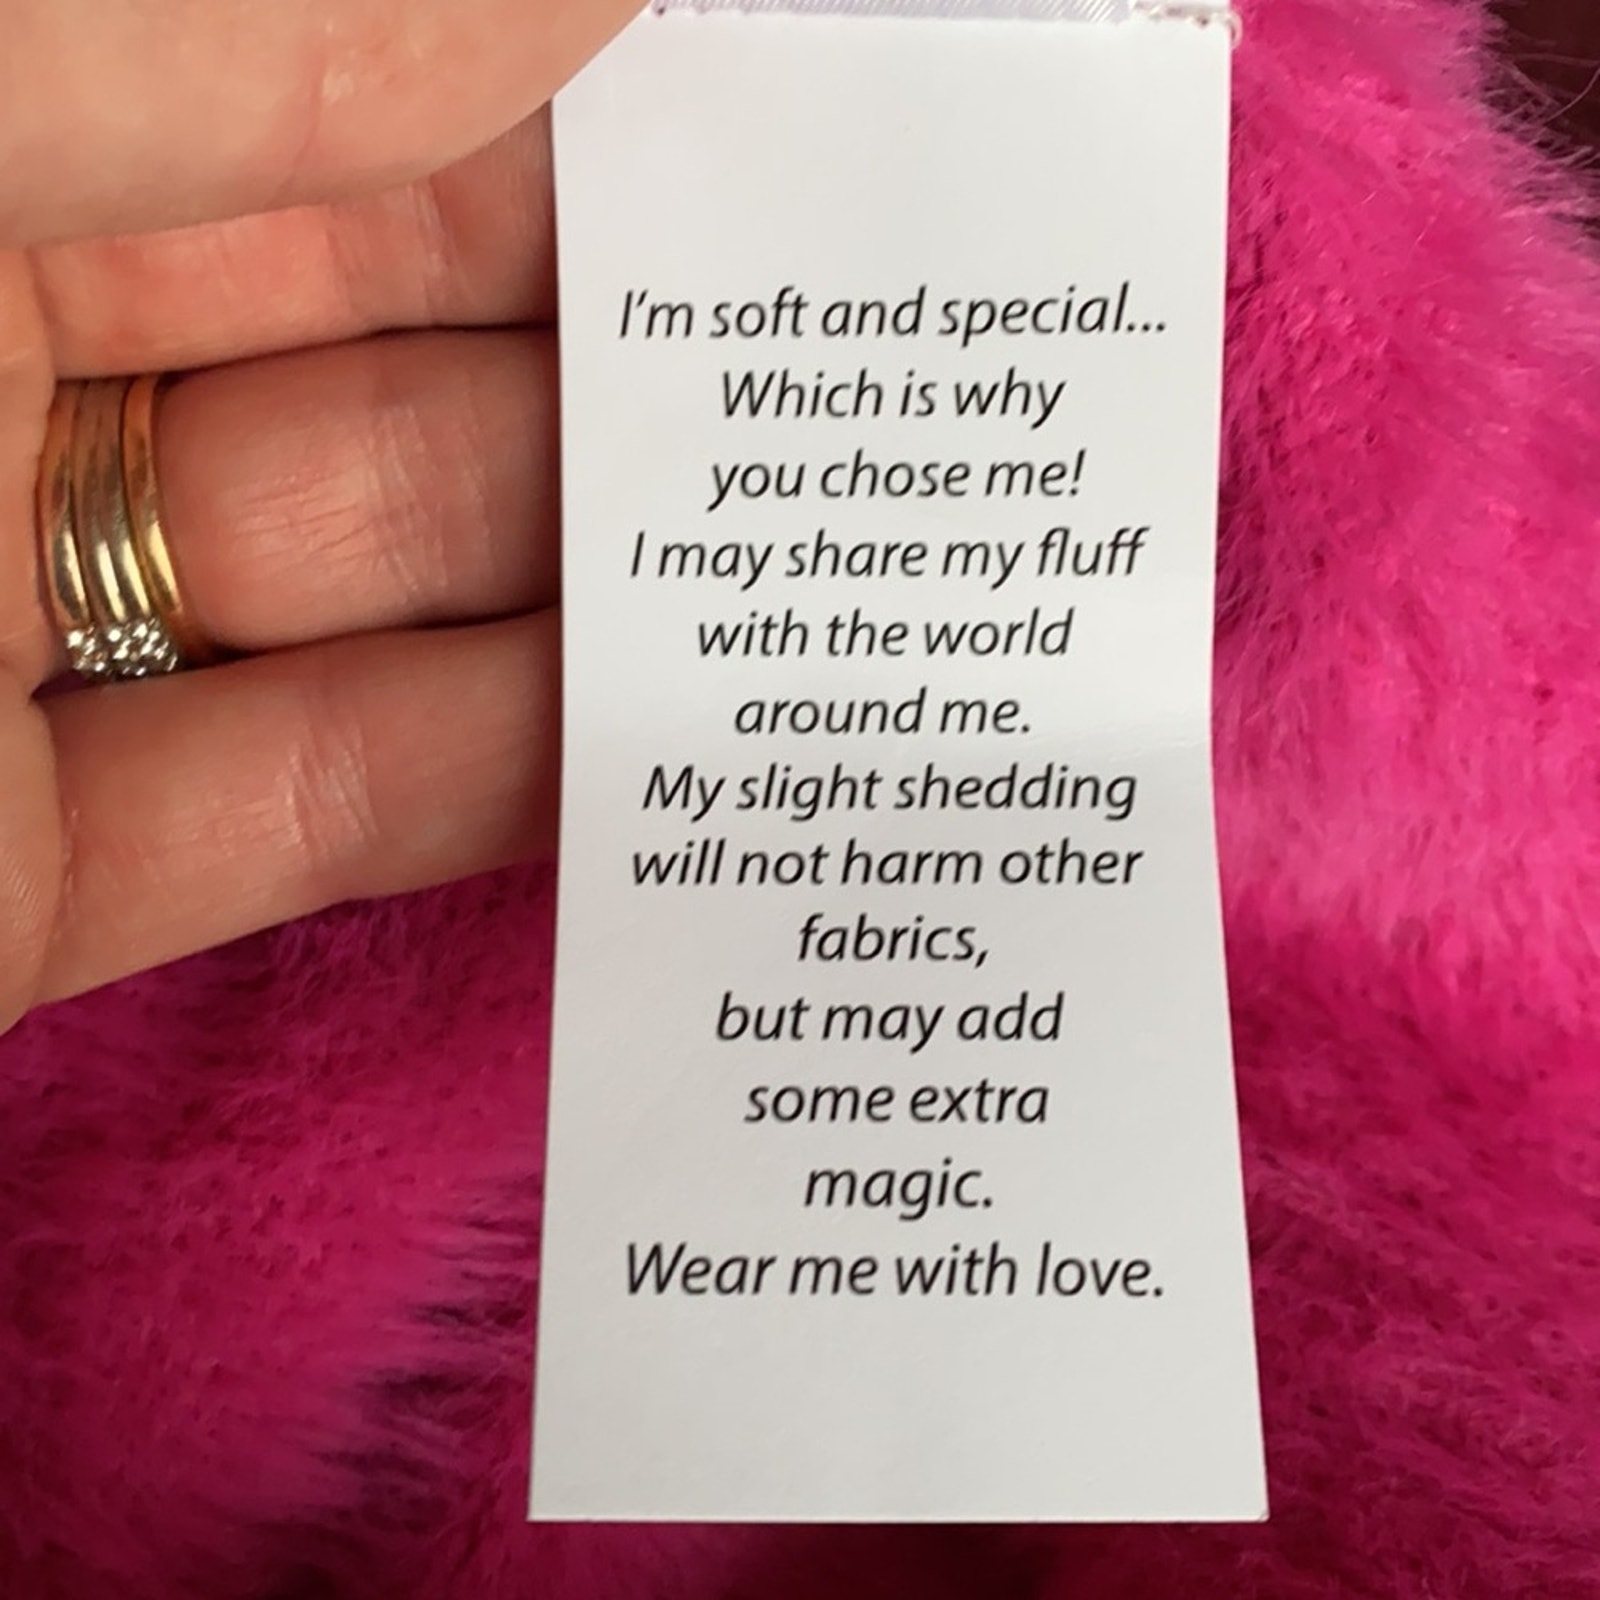 I'm soft and special...
Which is why
you chose me!
I may share my fluff
with the world
around me.
My slight shedding
will not harm other
fabrics,
but may add
some extra
magic.
Wear me with love.